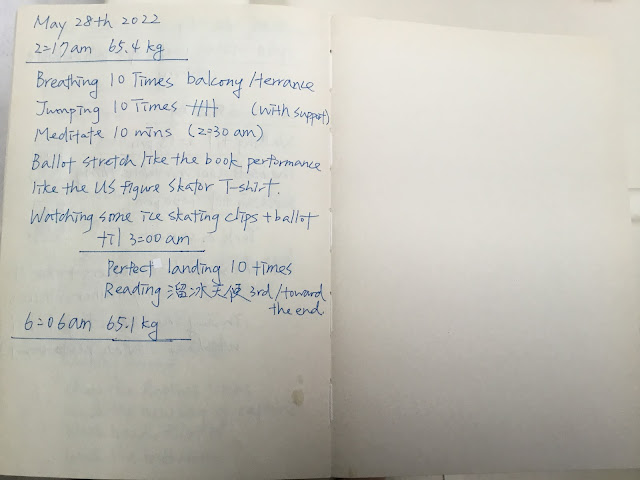 May 28th 2022
2=17am 65.4 kg
Breathing 10 Times balcony/terrance
Jumping 10 Times 卌 (with support)
Meditate 10 mins (2=30 am)
Ballot stretch like the book performance
like the US figure skator T-shirt.
Watching some ice skating clips + ballot
til 3=00 am
Perfect landing 10 times
Reading 溜冰天使 3rd/toward
the end
6=06am 65.1 kg